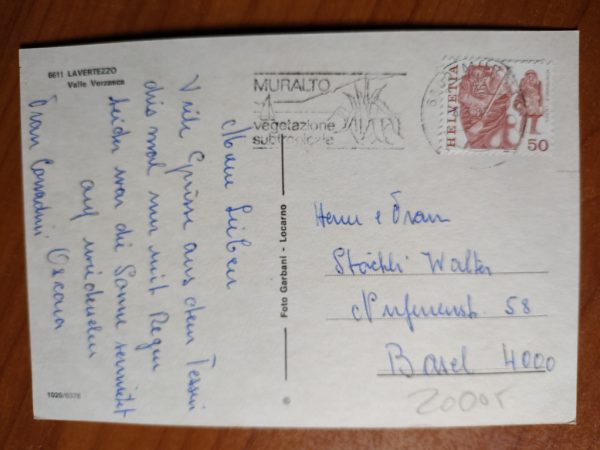 6611 LAVERTEZZO
Valle Verzasca
MURALTO
vegetazione
subtropicale
HELVETIA
50
Meine Lieben
Viele Grüsse aus dem Tessin
dies mal nur mit Regen
leider war die Sonne vermietet
auf wiedersehen
Oscara
Frau Corradini
Foto Garbani - Locarno
Herrn e Frau
Stöckli Walter
Nufenenstr. 58
Basel 4000
2000r
1020/6378